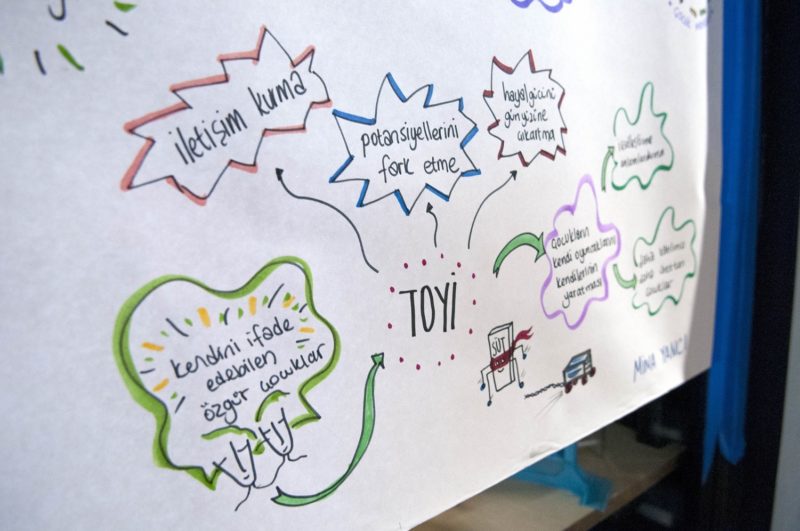 iletişim kurma
potansiyellerini
fark etme
hayal gücünü
gün yüzüne
çıkartma
TOYİ
çocukların
kendi oyuncaklarını
kendilerinin
yaratması
kendini ifade
edebilen
özgür çocuklar
SÜT
çocuklar
MİNA YANCI